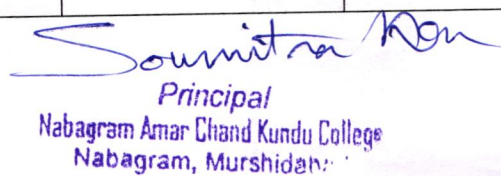 Soumitra Kar
Principal
Nabagram Amar Chand Kundu College
Nabagram,